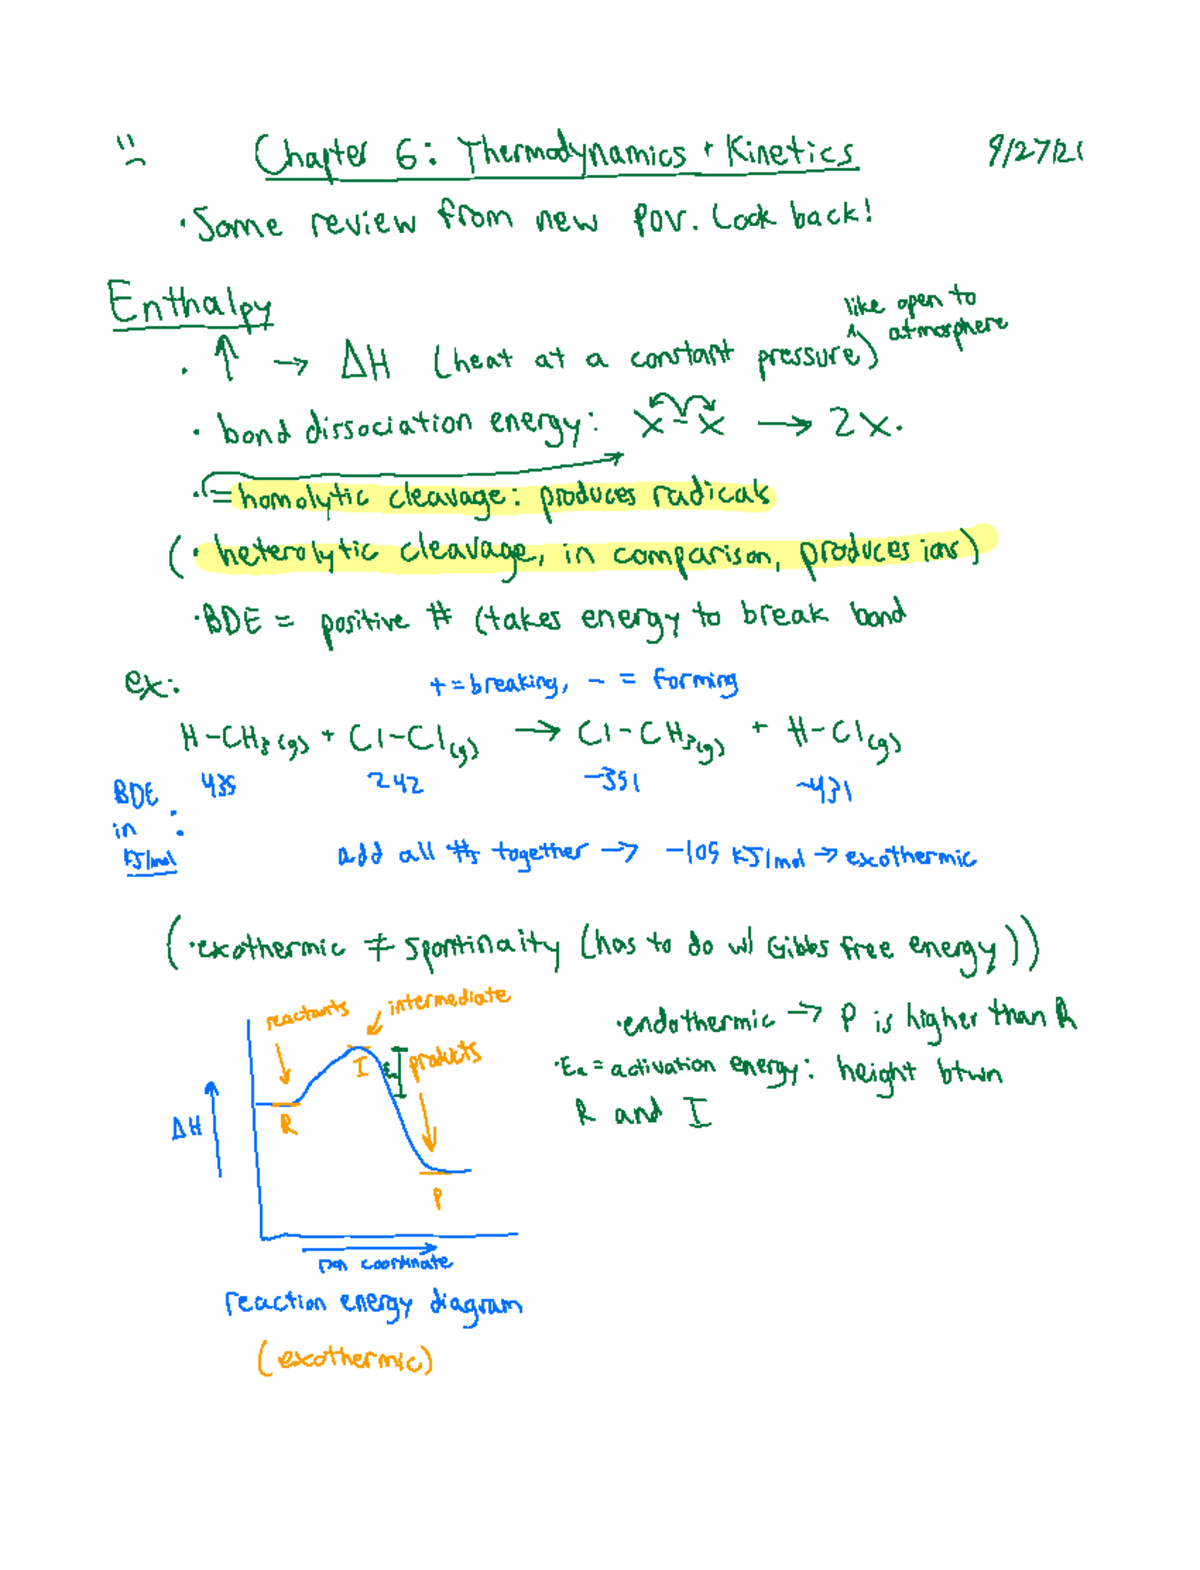 Chapter 6: Thermodynamics + Kinetics 9/27/21
·Some review from new POV. Look back!
Enthalpy
like open to
atmosphere
· ↑ → ΔH (heat at a constant pressure)
· bond dissociation energy: X-X → 2X·
· = homolytic cleavage: produces radicals
(· heterolytic cleavage, in comparison, produces ions)
·BDE = positive # (takes energy to break bond
ex: + = breaking, - = forming
H-CH₃(g) + Cl-Cl(g) → Cl-CH₃(g) + H-Cl(g)
BDE in kJ/mol : 435 242 -351 -431
add all #s together → -105 kJ/mol → exothermic
(·exothermic ≠ spontinaity (has to do w/ Gibbs free energy))
reactants
intermediate
products
·endothermic → P is higher than R
·Ea = activation energy: height btwn
R and I
ΔH
R
I
Ea
P
rxn coordinate
reaction energy diagram
(exothermic)